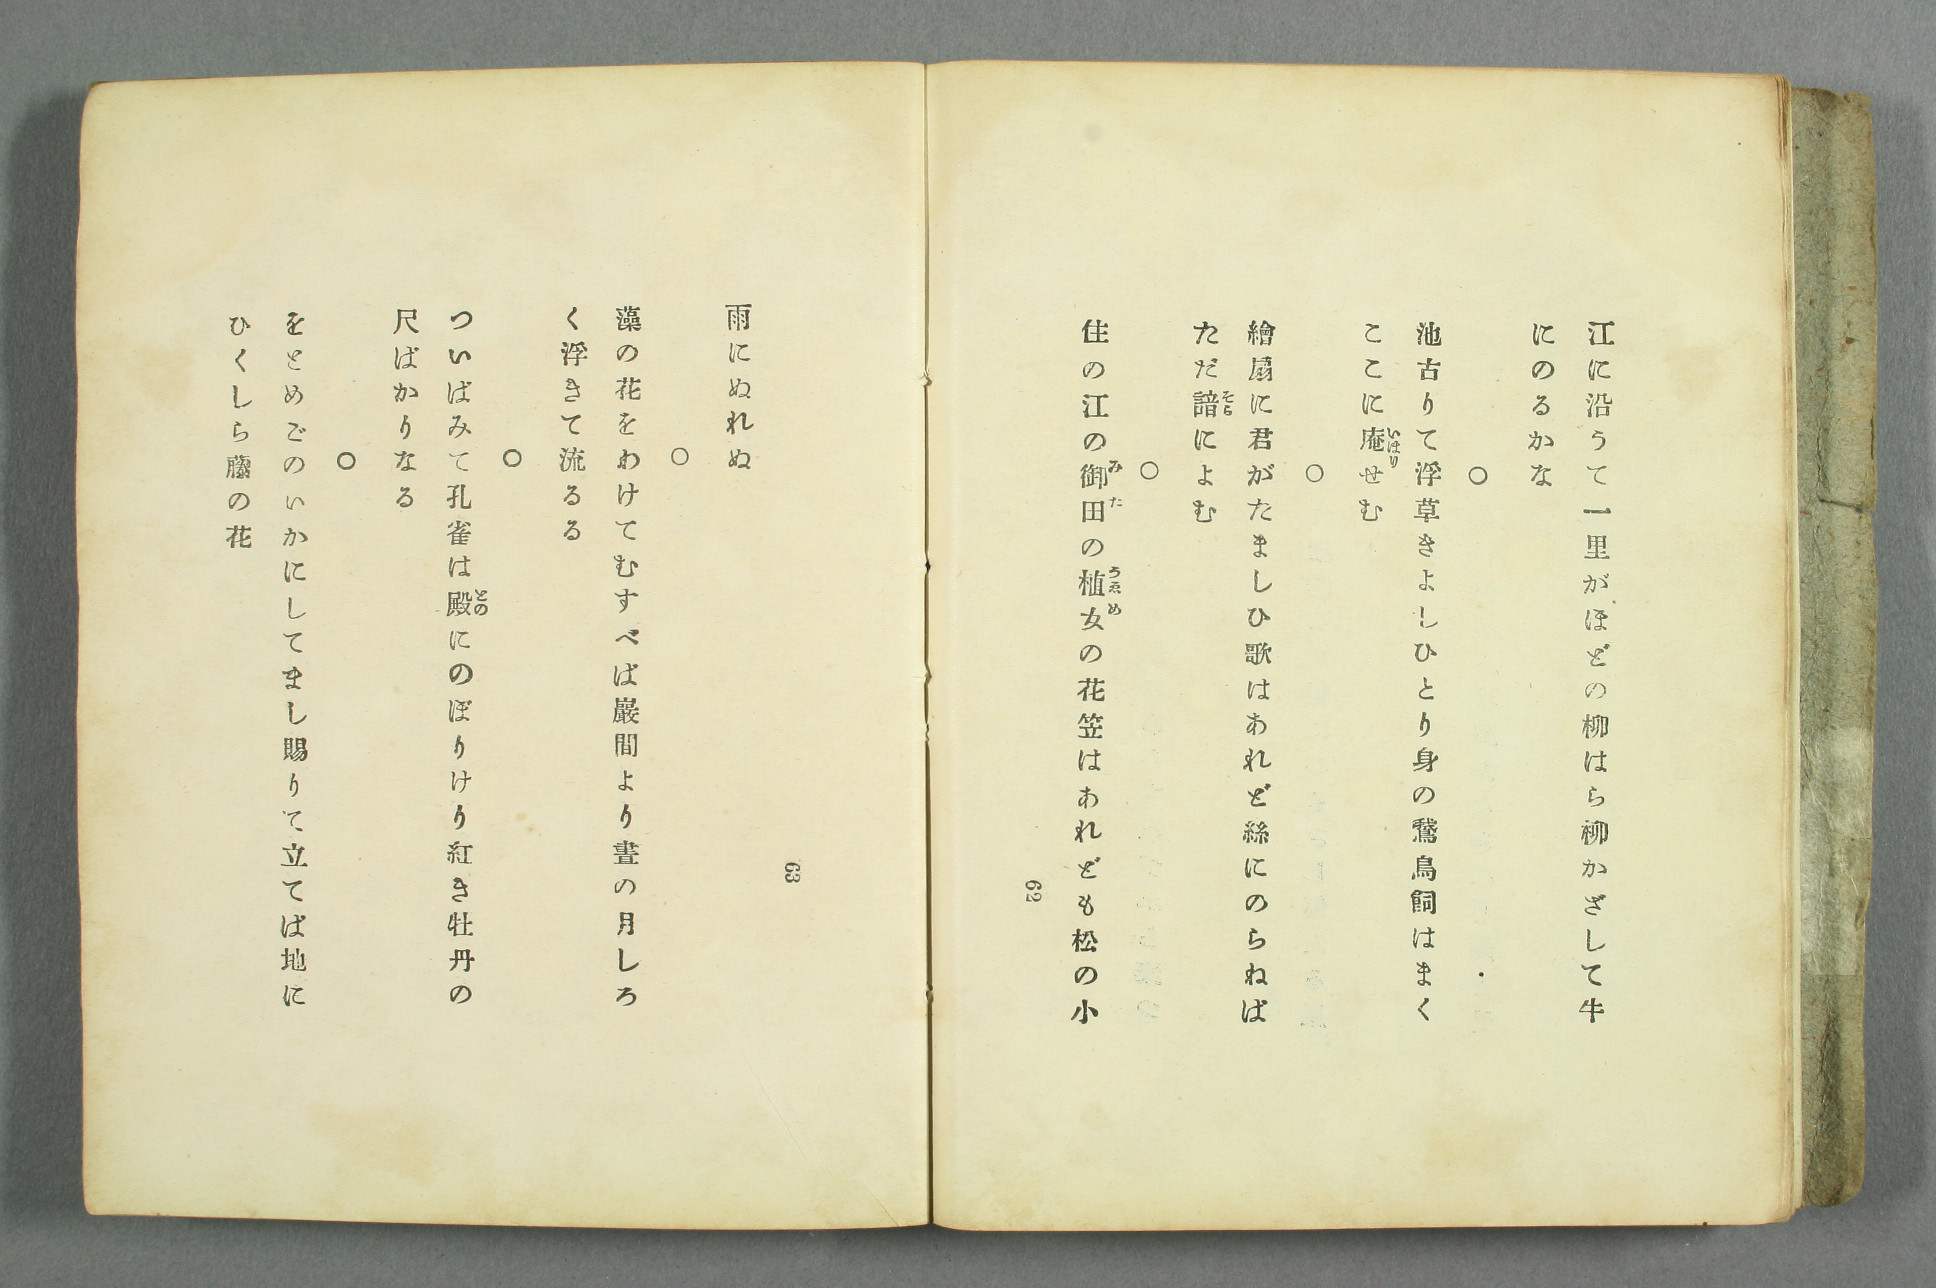 江に沿うて一里がほどの柳はら柳かざして牛
にのるかな
○
池古りて浮草きよしひとり身の鵞鳥飼はまく
ここに庵せむ
いほり
○
繪扇に君がたましひ歌はあれど絲にのらねば
ただ諳によむ
そら
○
住の江の御田の植女の花笠はあれども松の小
みた うゑめ
62
63
雨にぬれぬ
○
藻の花をわけてむすべば巖間より晝の月しろ
く浮きて流るる
○
ついばみて孔雀は殿にのぼりけり紅き牡丹の
との
尺ばかりなる
○
をとめごのいかにしてまし賜りて立てば地に
ひくしら藤の花